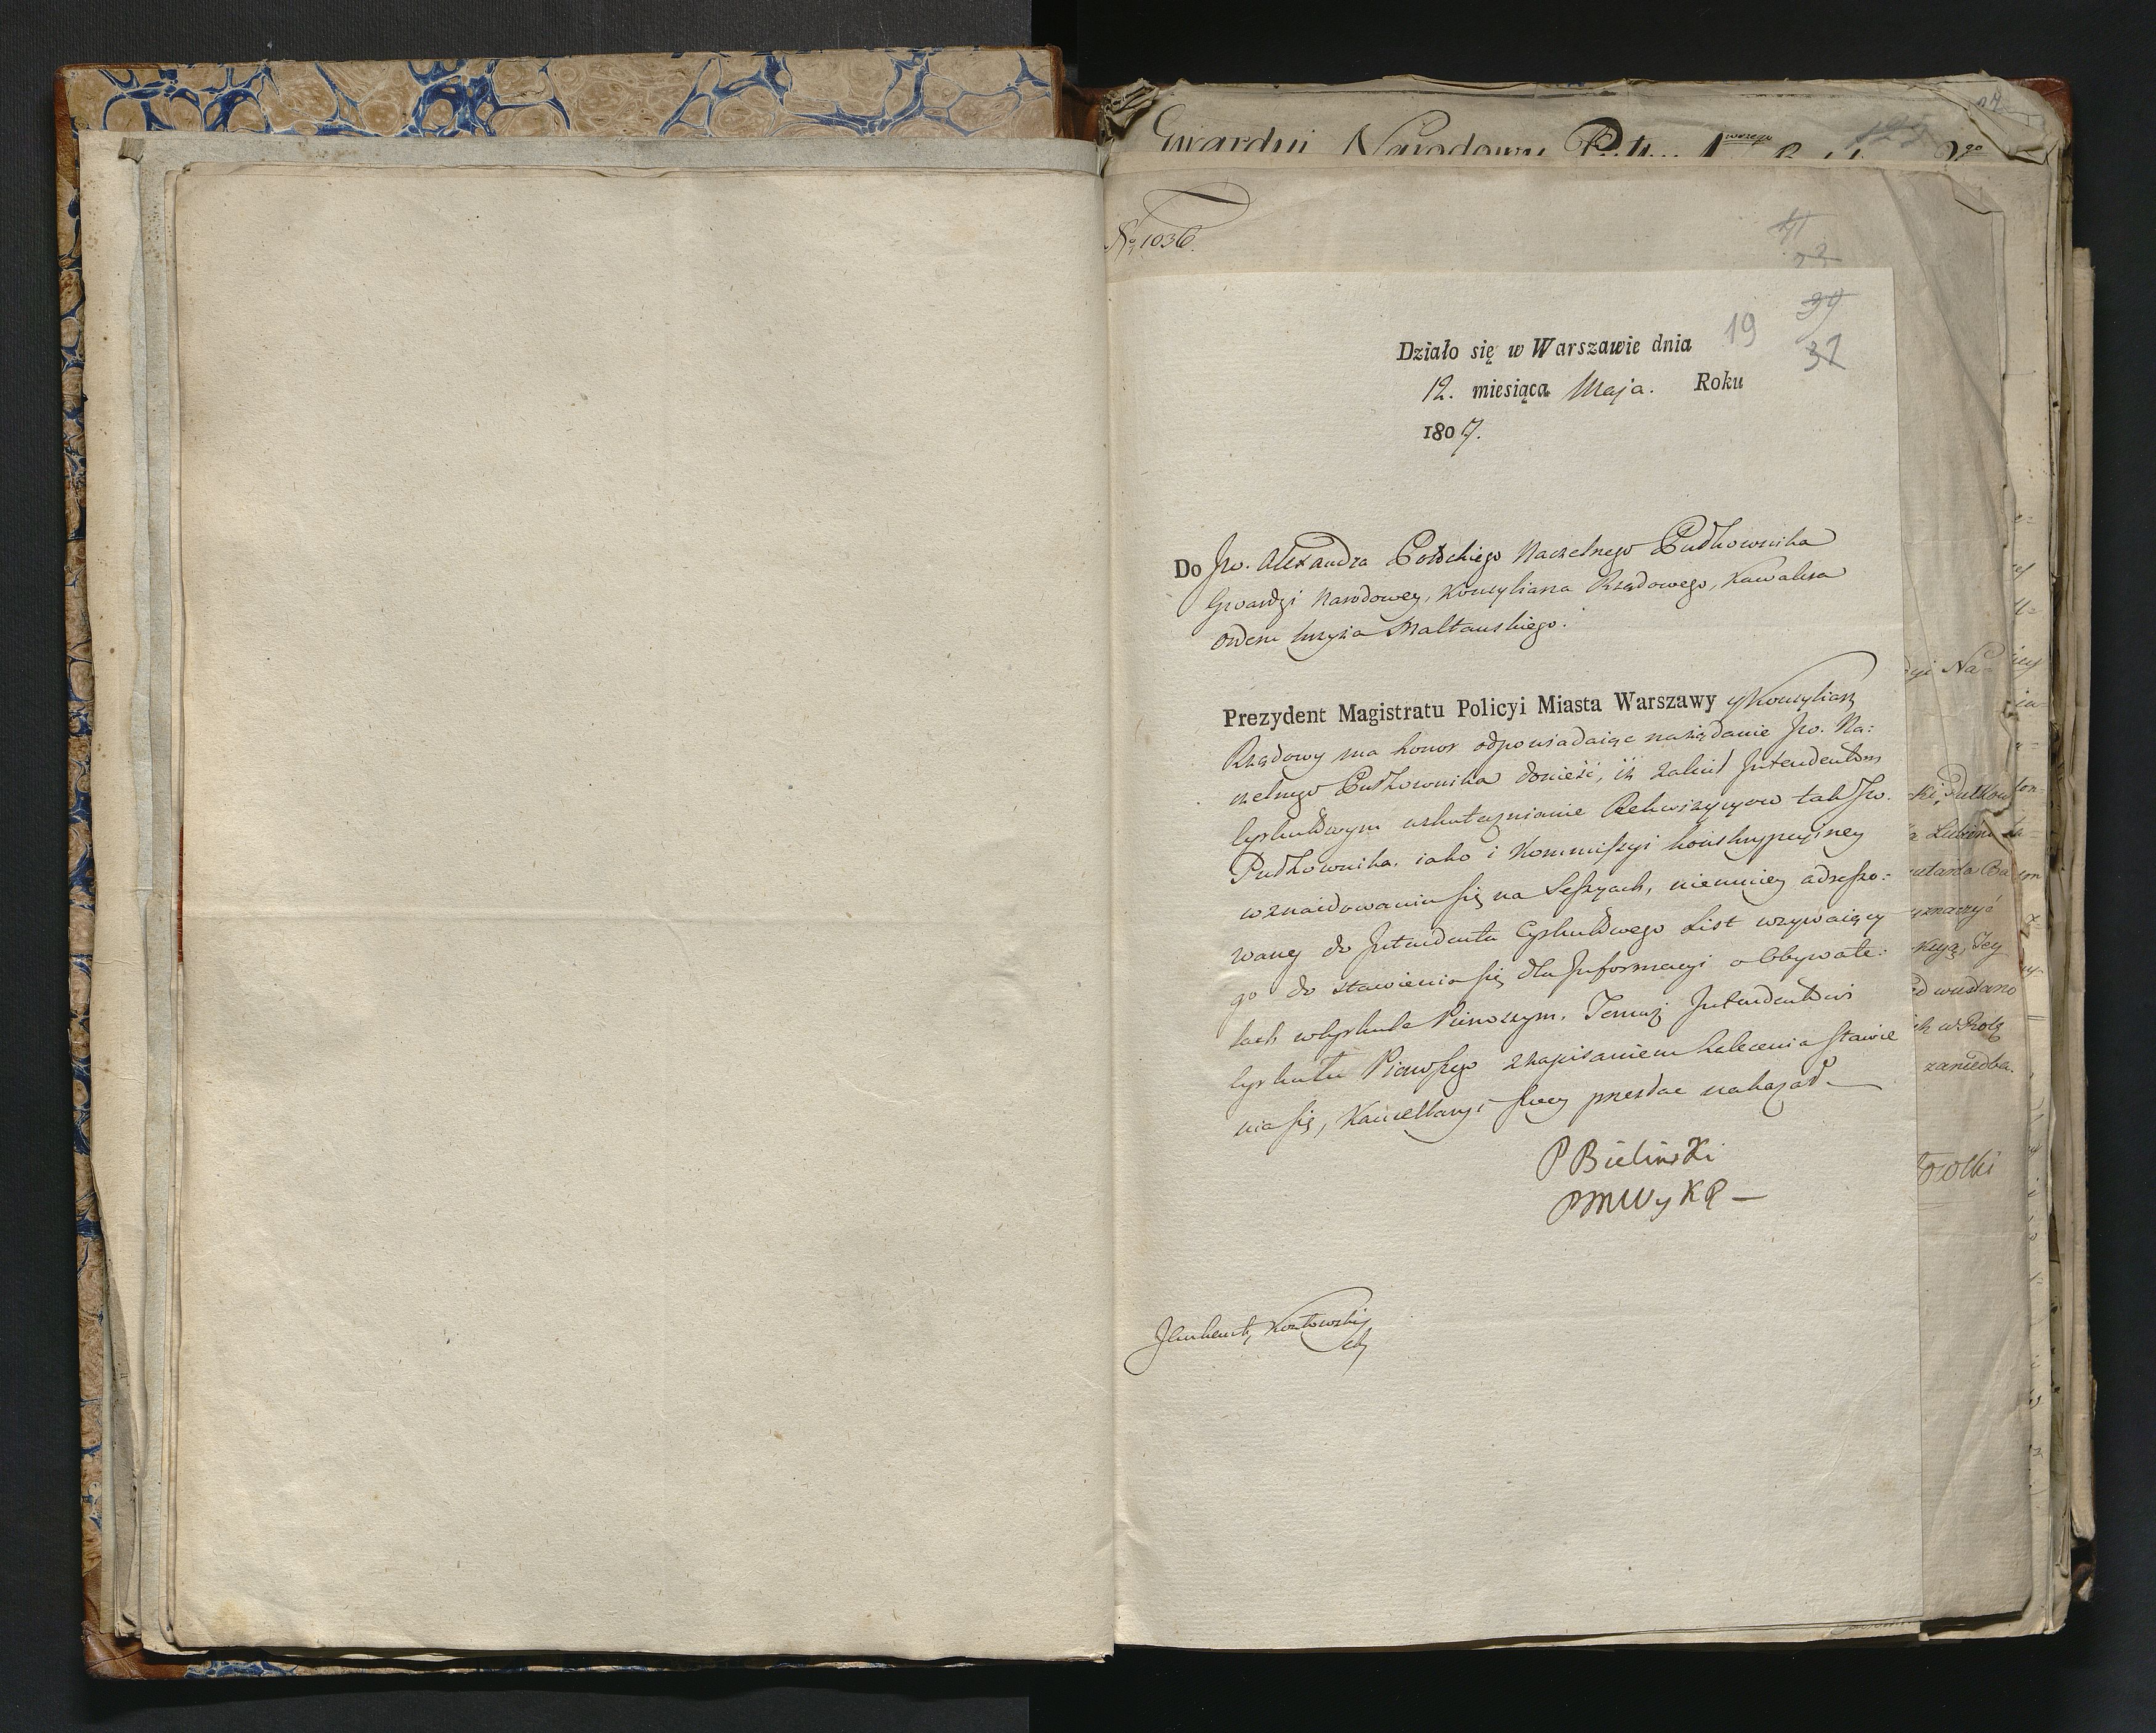 Gwardyi Narodowy
No 1036.
19
37
Działo się w Warszawie dnia
12. miesiąca Maja. Roku
1807.
Do Jw. Alexandra Potockiego Naczelnego Pułkownika
Gwardyi Narodowey, Konsyliarza Rządowego, Kawalera
Orderu krzyża Maltanskiego.
Prezydent Magistratu Policyi Miasta Warszawy y Konsyliarz
Rządowy ma honor odpowiadaiąc na żądanie Jw. Na:
czelnego Pułkownika donieść, iż zalecił Jntendentom
Cyrkułowym uskutecznianie Rekwizycyow tak Jw.
Pułkownika. iako i Kommissyi konskrypcyiney
w znaidowaniu się na Sessyach, niemniey adresso:
wany do Jntendenta Cyrkułowego List wzywaiący
go do stawienia się dla Jnformacyi o Obywate:
lach w Cyrkule Pierwszym. Temuż Jntendentowi
Cyrkułu Pierwszego z zapisaniem zalecenia stawie
nia się, Kancellaryi swey przesłac nakazał.
P Bielinski
PMW y KR